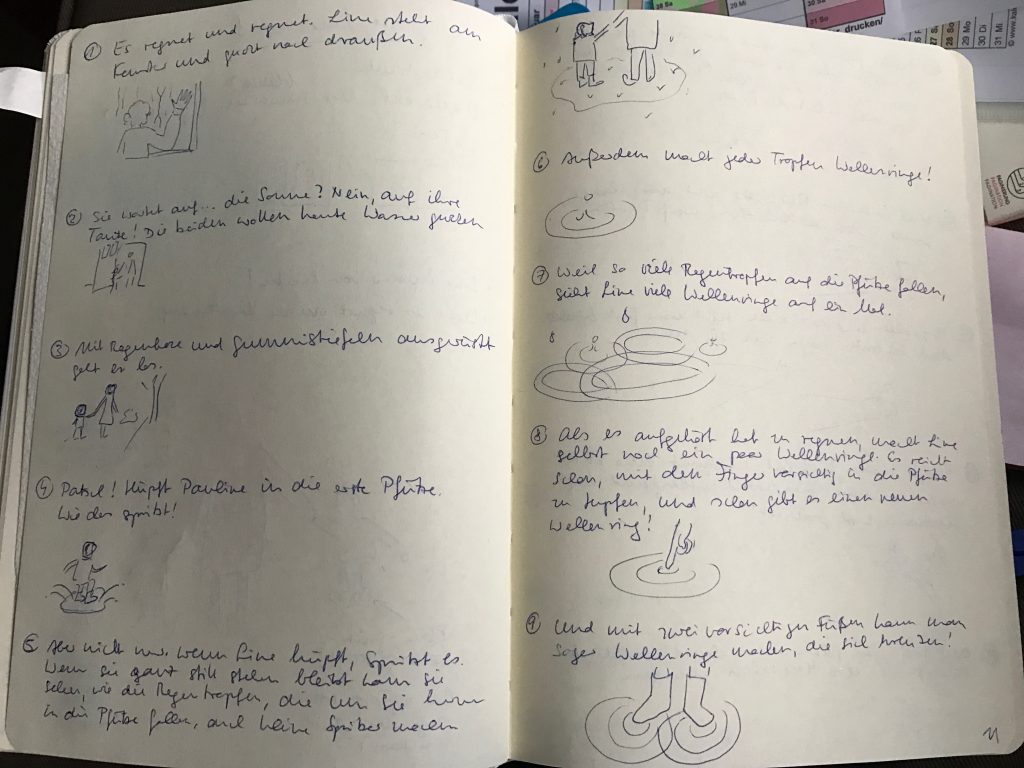 ① Es regnet und regnet. Line steht am
Fenster und guckt nach draußen.
② Sie wartet auf... die Sonne? Nein, auf ihre
Tante! Die beiden wollen heute Wasser
③ Mit Regenhose und Gummistiefeln ausgerüstet
geht es los.
④ Patsch! Hüpft Pauline in die erste Pfütze.
Wie das spritzt!
⑤ Aber nicht nur wenn Line hüpft, spritzt es.
Wenn sie ganz still stehen bleibt kann sie
sehen, wie die Regentropfen, die um sie herum
in die Pfütze fallen, auch kleine Spritzer machen
⑥ Außerdem macht jeder Tropfen Wellenringe!
⑦ Weil so viele Regentropfen auf die Pfütze fallen,
sieht Line viele Wellenringe auf ein Mal.
⑧ Als es aufgehört hat zu regnen, macht Line
selbst noch ein paar Wellenringe. Es reicht
schon, mit dem Finger vorsichtig in die Pfütze
zu tupfen, und schon gibt es einen neuen
Wellenring!
⑨ Und mit zwei vorsichtigen Füßen kann man
sogar Wellenringe machen, die sich kreuzen!
11
drucken/
28 So
29 Mo
30 Di
31 Mi